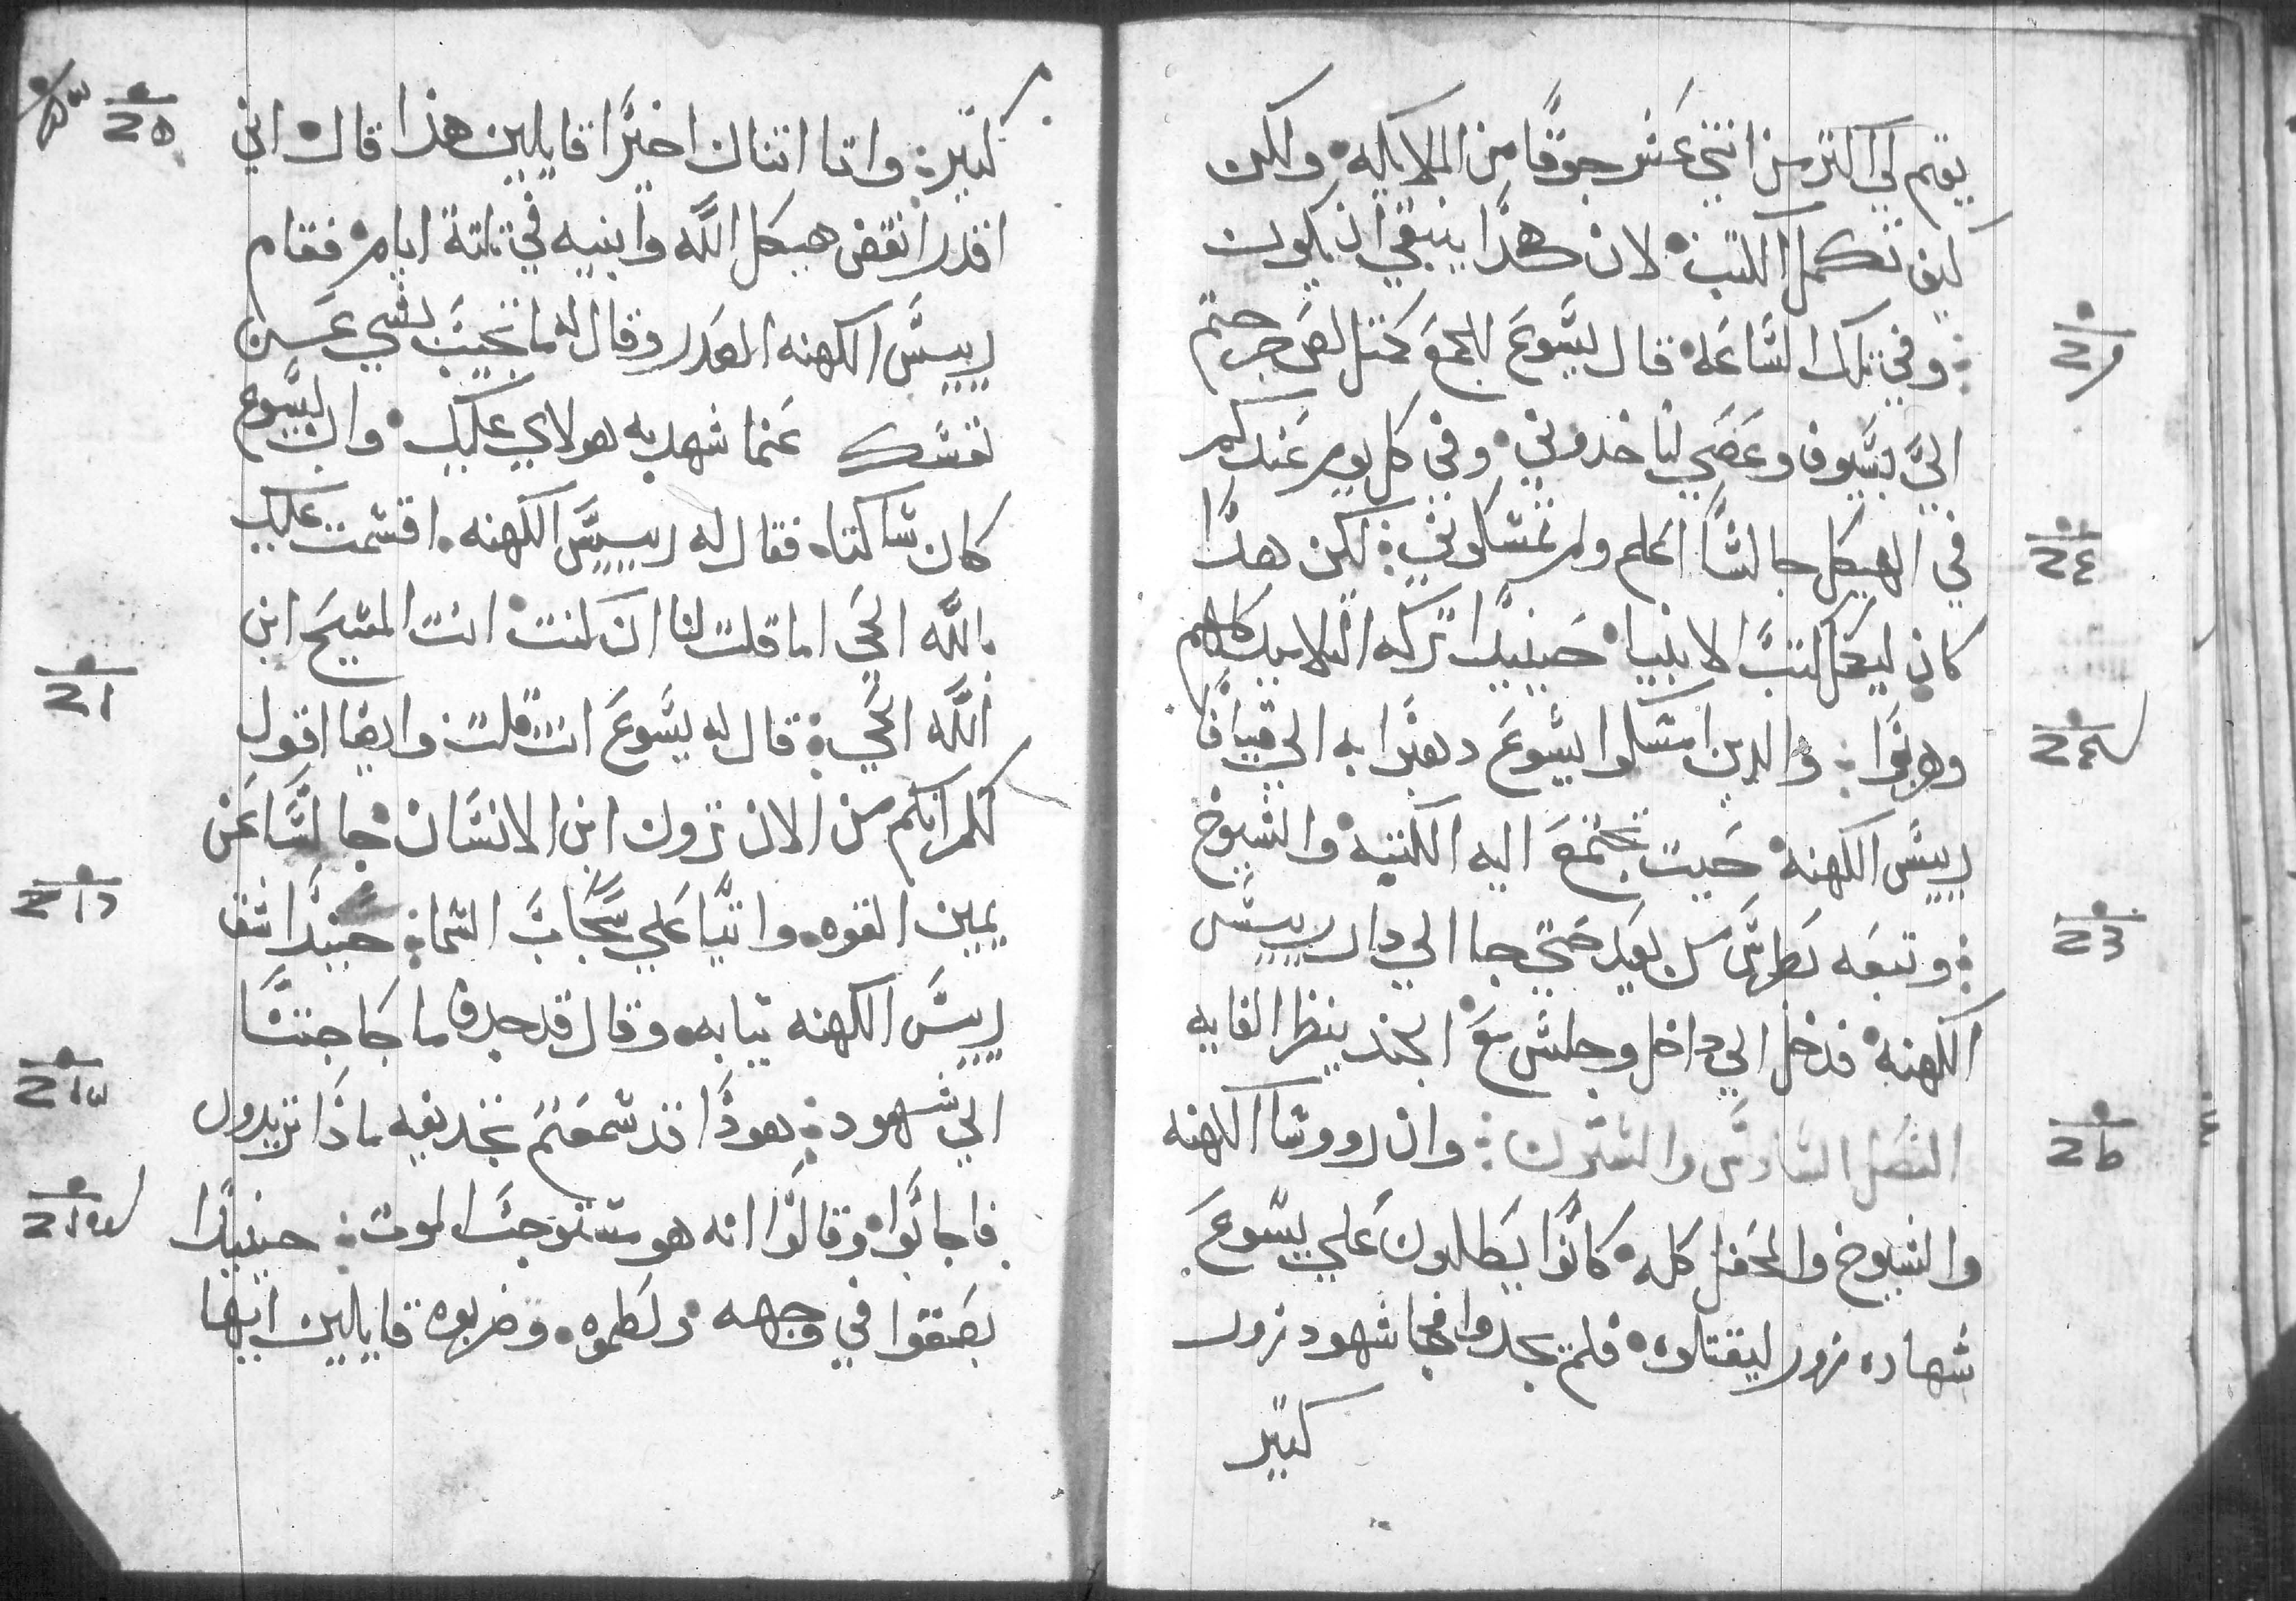 يقيم لي اكتر من اتني عشر جوقًا من الملايكه ولكن
كيف تكمل الكتب لان هكدا ينبغي ان يكون
وفي تلك الساعه قال يسوع للجمع كمتل لص خرجتم
الي بسيوف وعصي لتاخدوني وفي كل يوم عندكم
في الهيكل جالسًا اعلم ولم تمسكوني لكن هدا
كان ليكمل كتب الانبيا حينيدًا تركه التلاميد كلهم
وهربوا والدين امسكوا يسوع دهبوا به الي قيافا
رييس الكهنه حيت تجتمع اليه الكتبه والشيوخ
وتبعه بطرس من بعيد حتي جا الي دار رييس
الكهنه فدخل الي داخل وجلس مع الجند ينظر الغايه
الفصل السادس والستون وان رووسا الكهنه
والشيوخ والمحفل كله كانوا يطلبون علي يسوع
شهاده زور ليقتلوه فلم يجدوا فجا شهود زور
كتير
كتيره واتا اتنان اخيرًا قايلين هذا قال اني
اقدر انقض هيكل الله وابنيه في تلتة ايام فقام
رييس الكهنه وقال له ما تجيب بشي عن
نفسك عنما شهد به هولاي عليك وان يسوع
كان ساكتا فقال له رييس الكهنه اقسمت عليك
بالله الحي اما قلت لنا ان كنت انت المسيح ابن
الله الحي قال له يسوع انت قلت وايضا اقول
لكم انكم من الان ترون ابن الانسان جالسًا عن
يمين القوه واتيًا علي سحاب السما حينيدًا شق
رييس الكهنه تيابه وقال قد جدف ما حاجتنا
الي شهود هوذا قد سمعتم تجديفه ماذا تريدون
فاجابوا وقالوا انه هو مستوجب الموت حينيدًا
بصقوا في وجهه ولطموه وضربوه قايلين ايها